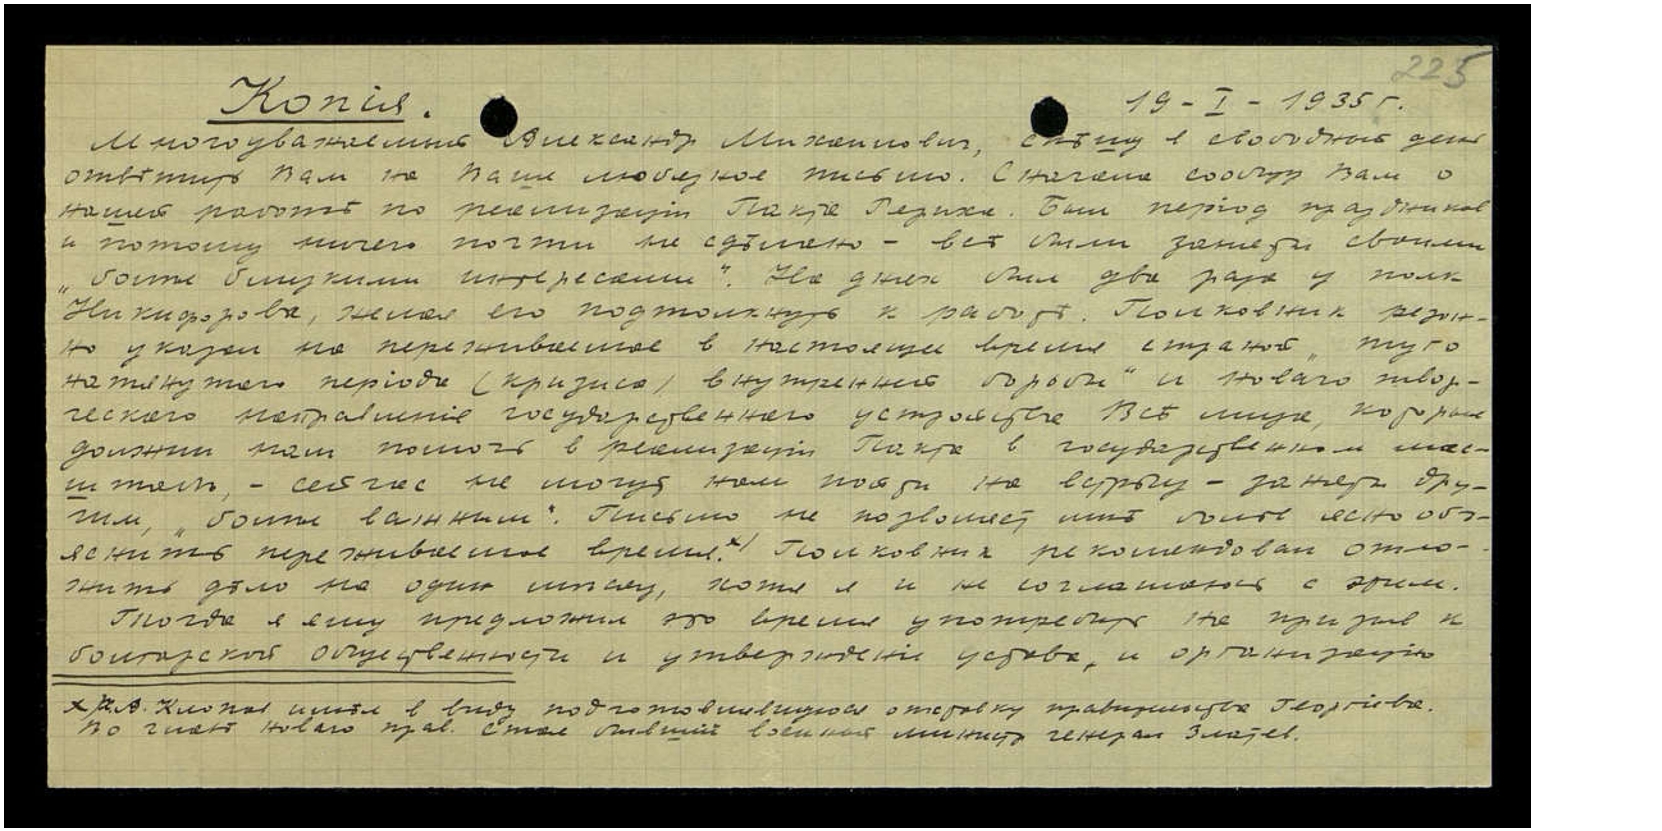 225
Копія.
19 - I - 1935 г.
Многоуважаемый Александр Михайлович, спѣшу в свободный день
отвѣтить Вам на Ваше любезное письмо. Сначала сообщу Вам о
нашей работѣ по реализаціи Пакта Рериха. Был період праздников
и потому ничего почти не сдѣлано - всѣ были заняты своими
„более близкими интересами". На днях был два раза у полк
Никифорова, желая его подтолкнуть к работѣ. Полковник резон-
но указал на переживаемое в настоящее время страной „туго
натянутаго періода (кризиса) внутренней борьбы" и новаго твор-
ческаго направленія государственнаго устройства Всѣ лица, которые
должны нам помочь в реализаціи Пакта в государственном мас-
штабѣ, - сейчас не могут нам пойти на встрѣчу - заняты дру-
гим, „более важным". Письмо не позволяет мнѣ более ясно объ-
яснить переживаемое время.x) Полковник рекомендовал отло-
жить дѣло на один мѣсяц, хотя я и не соглашаюсь с этим.
Тогда я ему предложил это время употребить на призыв к
болгарской общественности и утвержденіе устава, и организацію
x) К.А. Клопов имѣл в виду подготовлявшуюся отставку правительства Георгіева.
Во главѣ новаго прав. стал бывшій военный министр генерал Златев.